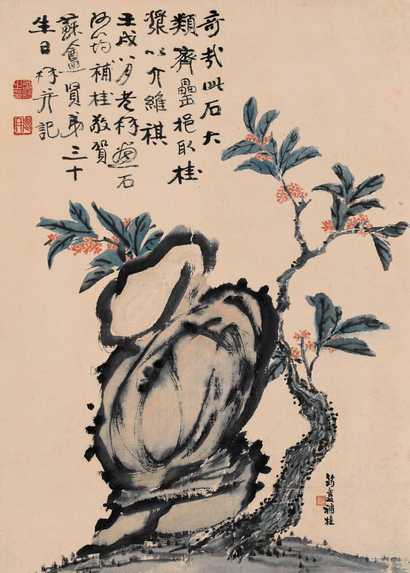 奇哉此石大
類齊罍挹取桂
漿以介維祺
壬戌八月老畫石
筠補桂敬賀
蘇盦賢弟三十
生日并記
筠盦補桂